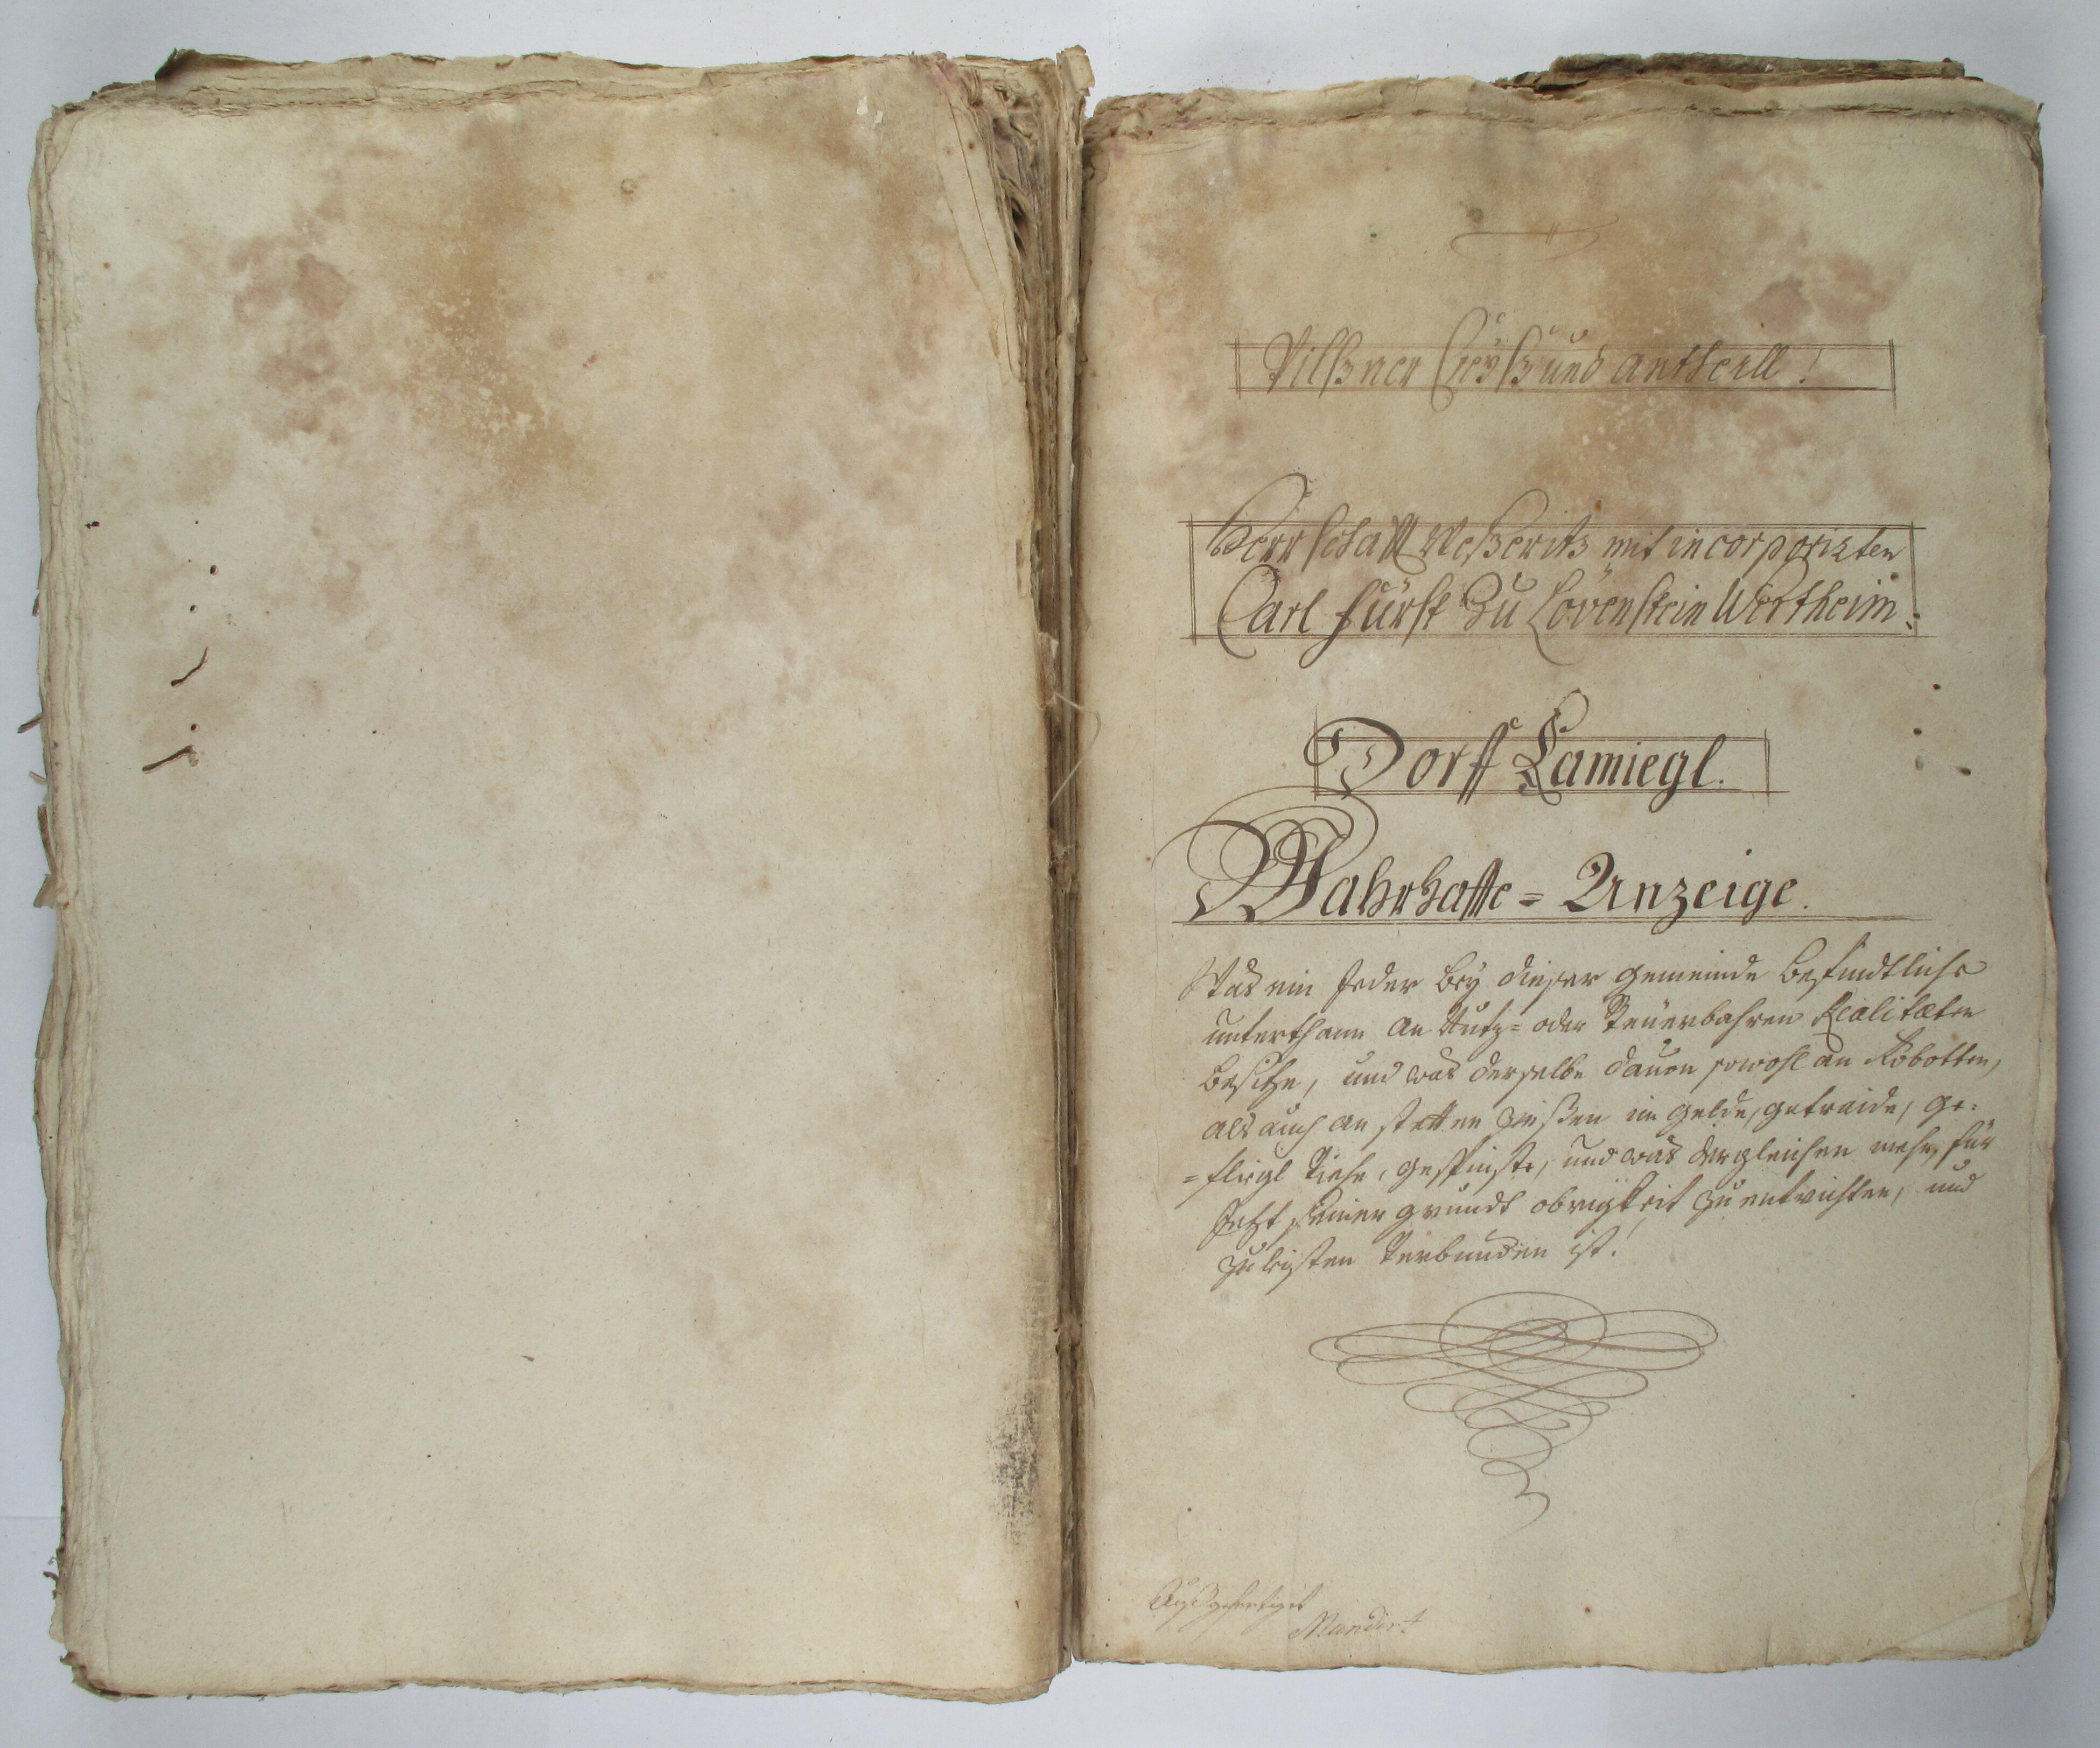 Pilßner Creÿß und antheill!
Herrschafft Weßeritz mit incorporirten
Carl Fürst Zu Lövenstein Wertheim:
Dorff Lamiegl.
Wahrhaffte = Anzeige.
Was ein Jeder beÿ dießer gemeinde befindtliche
unterthann an Nutz= oder Steüerbahren Realitæten
besitze, und was derselbe dauon sowohl an Robotten,
als auch an stetten Zinßen im gelde, getraide, ge=
=fliegl Viehe, gespinste, und was dergleichen mehr für
Jetzt seiner grundt obrigkeit zu entrichten, und
zu leisten Verbunden ist!
Außgefertiget
Mundirt